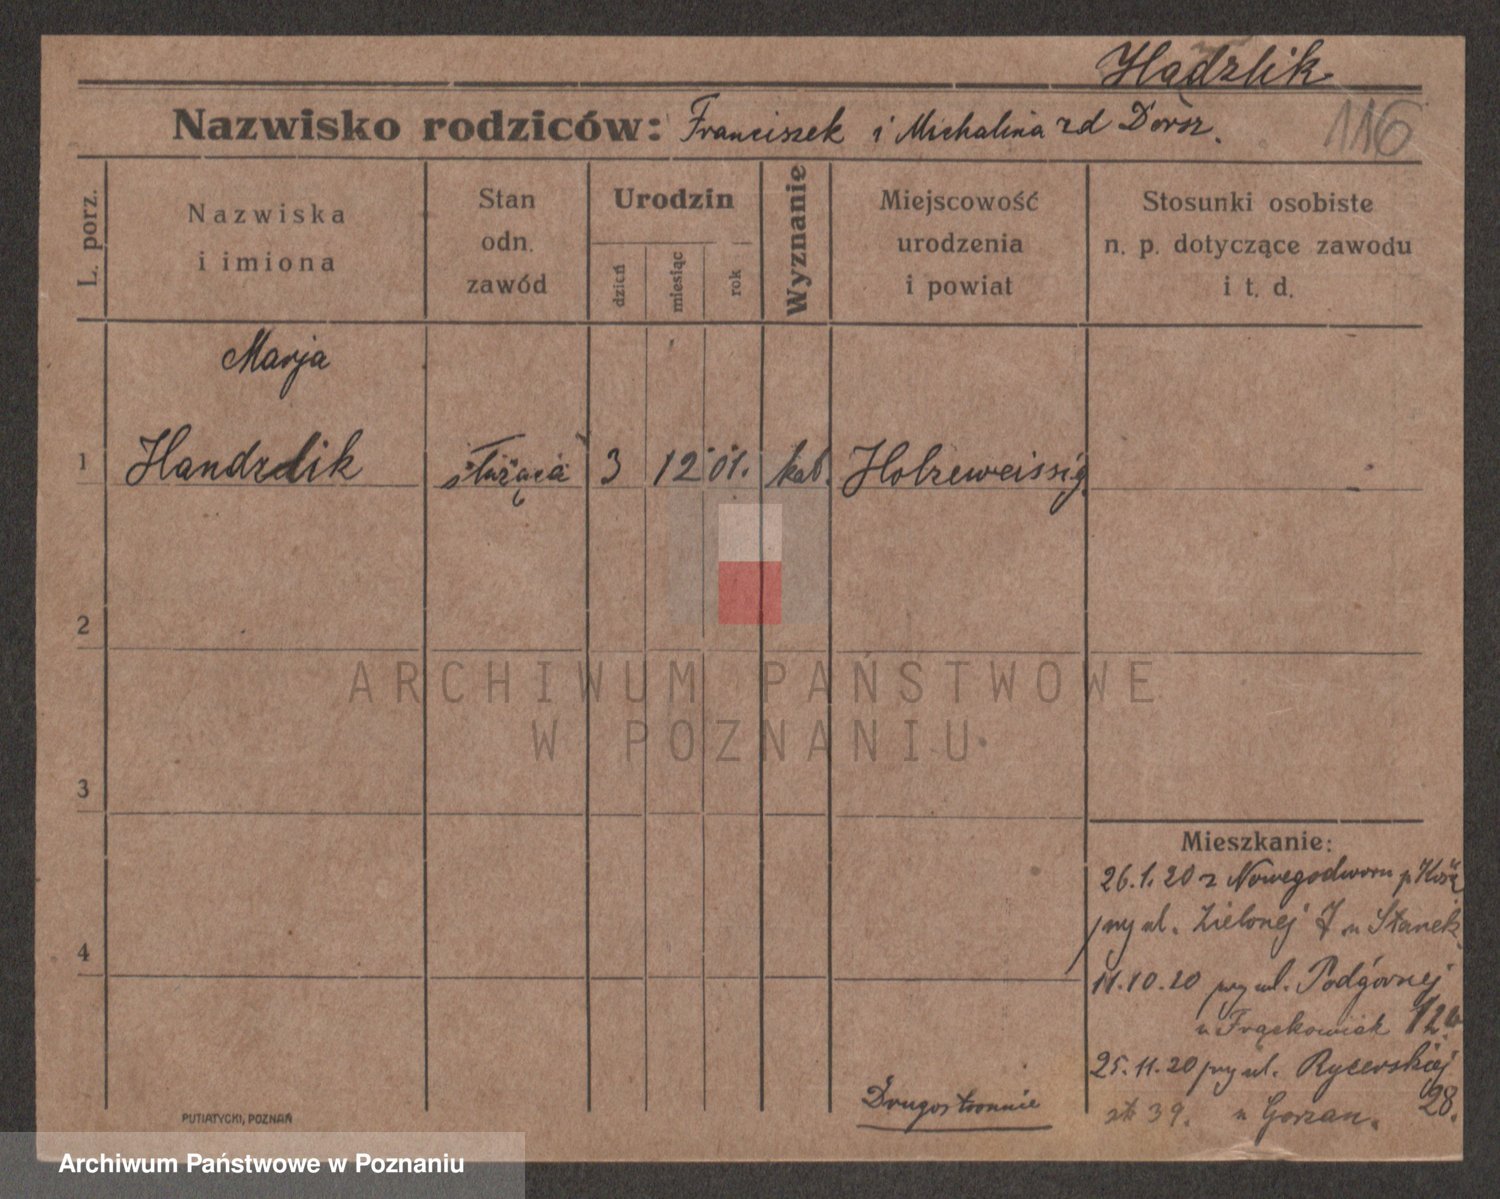 Hądzlik
Nazwisko rodziców: Franciszek i Michalina zd Dorsz.
116
L. porz.
Nazwiska
i imiona
Stan
odn.
zawód
Urodzin
dzień
miesiąc
rok
Wyznanie
Miejscowość
urodzenia
i powiat
Stosunki osobiste
n. p. dotyczące zawodu
i t. d.
Marja
1 Handzlik służąca 3 12 01. kat. Holzweissig
2
3
4
Mieszkanie:
26.1.20 z Nowegodworu p.
przy ul. Zielonej 7 u Stanek
11.10.20 przy ul. Podgórnej
u Frąckowiak 12a
25.11.20 przy ul. Rycerskiej
39. u Gorzan. 28.
Drugostronnie
PUTIATYCKI, POZNAŃ
ARCHIWUM PAŃSTWOWE
W POZNANIU
Archiwum Państwowe w Poznaniu